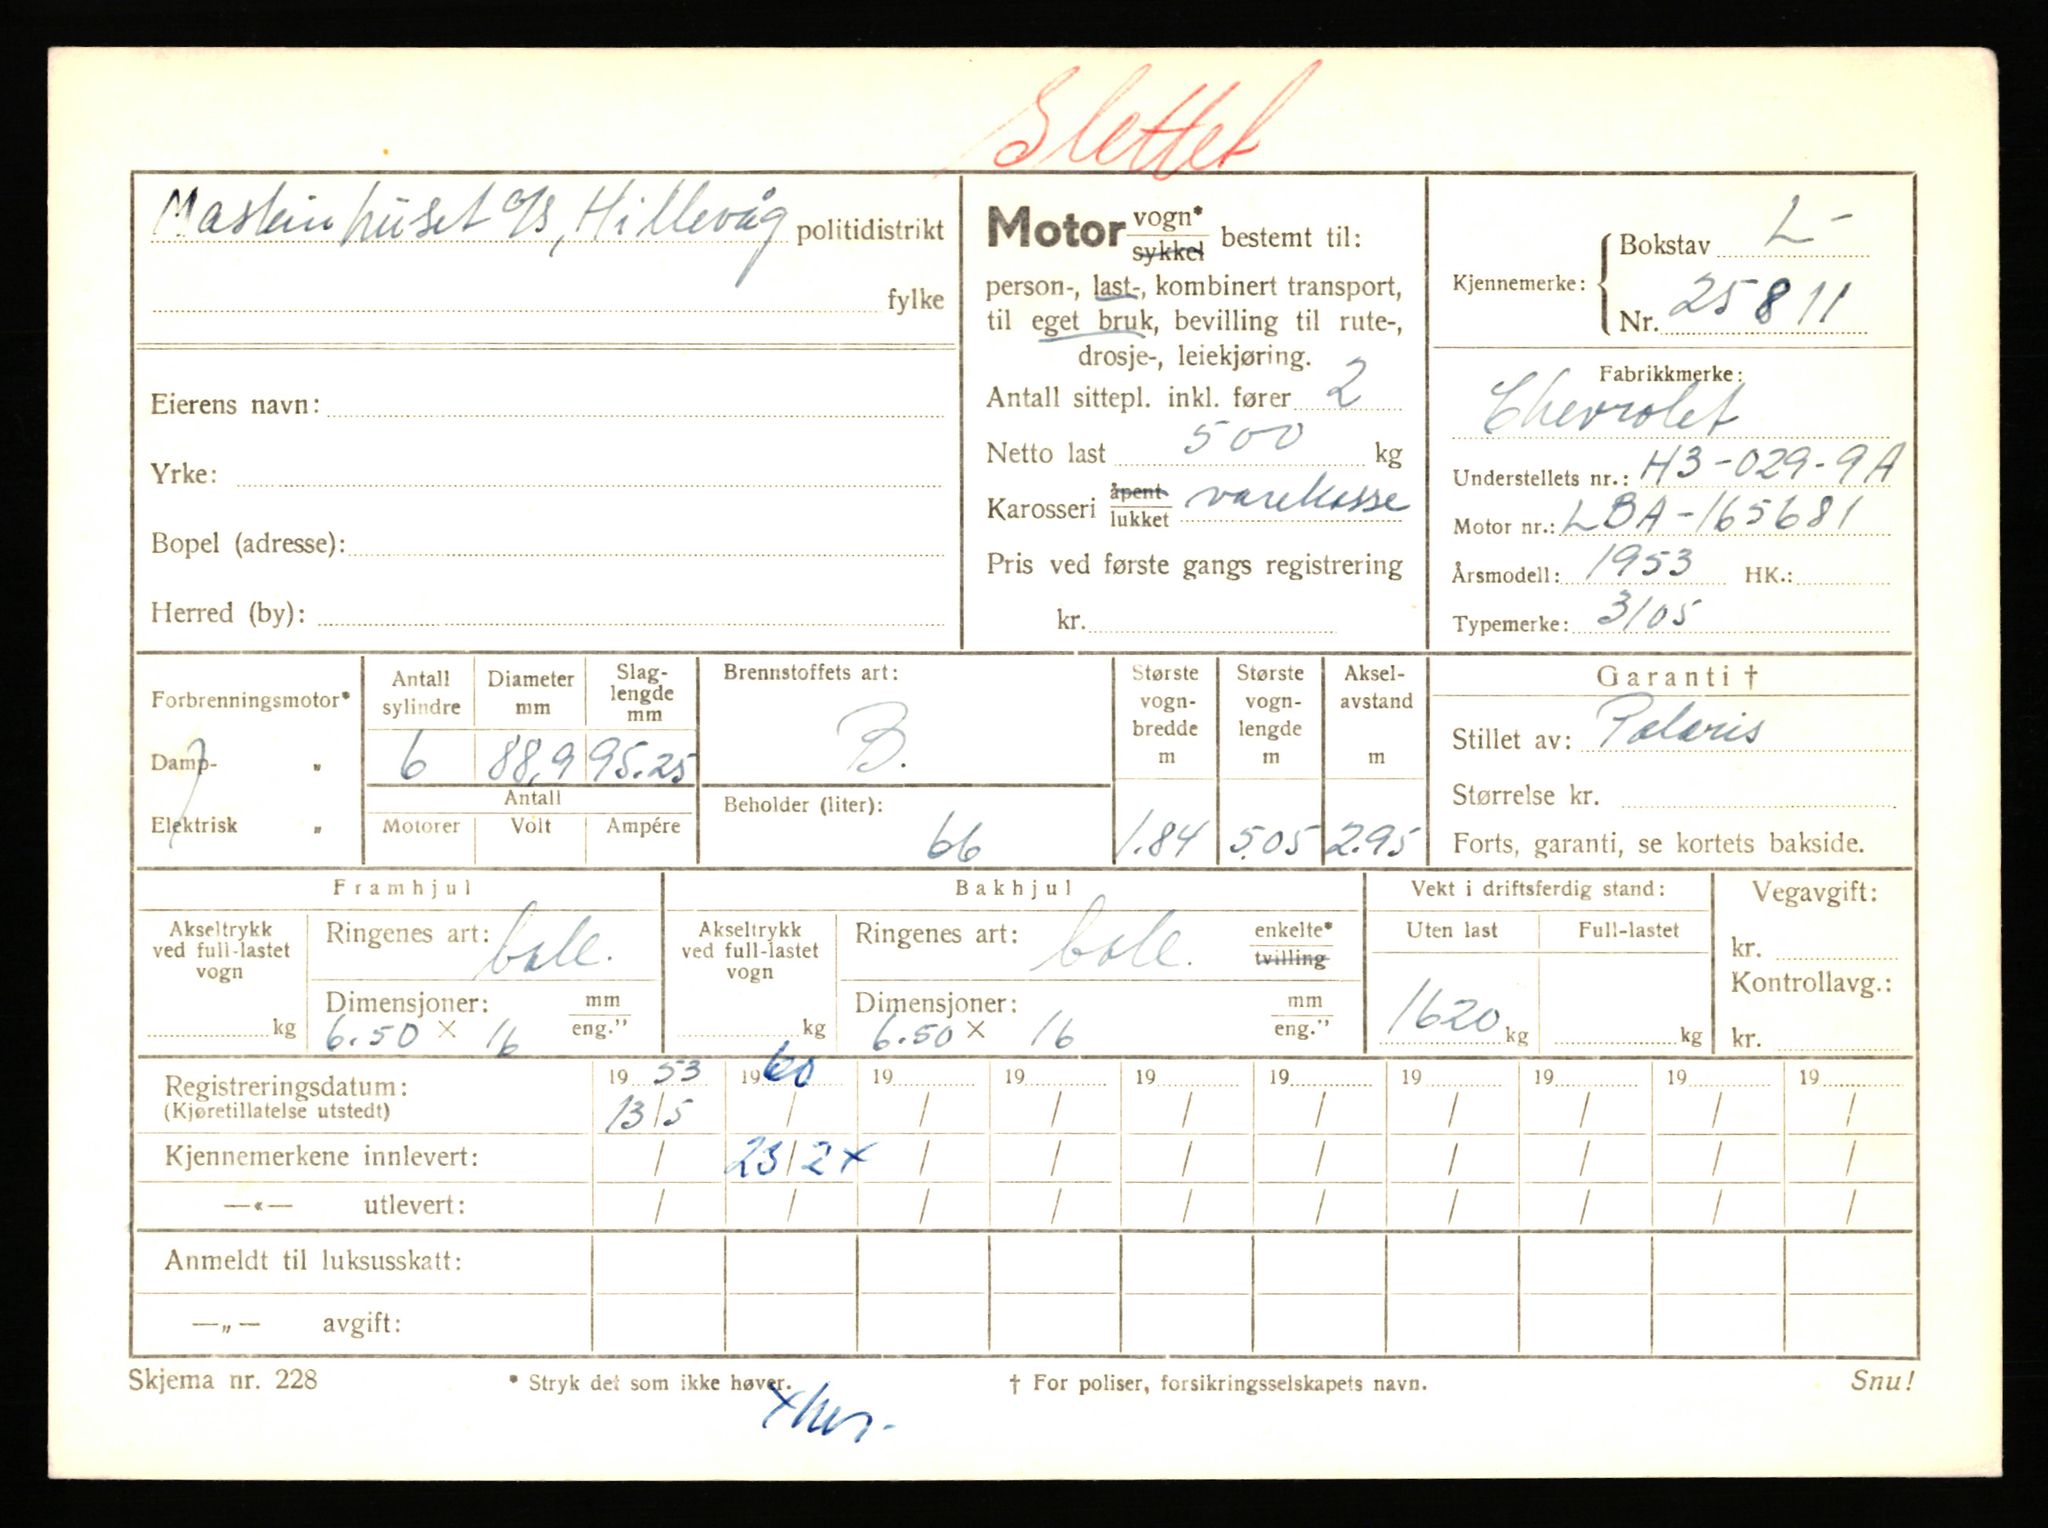 Slettet
Maskinhuset A/S, Hillevåg politidistrikt
fylke
Eierens navn:
Yrke:
Bopel (adresse):
Herred (by):
Motor vogn* sykkel bestemt til:
person-, last-, kombinert transport,
til eget bruk, bevilling til rute-,
drosje-, leiekjøring.
Antall sittepl. inkl. fører 2
Netto last 500 kg
Karosseri åpent lukket varekasse
Pris ved første gangs registrering
kr.
Kjennemerke: Bokstav L-
Nr. 25811
Fabrikkmerke:
Chevrolet
Understellets nr.: H3-029-9A
Motor nr.: LBA-165681
Årsmodell: 1953 HK.:
Typemerke: 3105
Forbrenningsmotor*
Damp- „
Elektrisk „
Antall sylindre Diameter mm Slag-lengde mm
6 88,9 95.25
Antall
Motorer Volt Ampére
Brennstoffets art:
B.
Beholder (liter):
66
Største vogn-bredde m
1.84
Største vogn-lengde m
5.05
Aksel-avstand m
2.95
Garanti †
Stillet av: Polaris
Størrelse kr.
Forts, garanti, se kortets bakside.
Framhjul
Akseltrykk ved full-lastet vogn
kg
Ringenes art:
Dimensjoner: mm eng."
6.50 × 16
Bakhjul
Akseltrykk ved full-lastet vogn
kg
Ringenes art: enkelte* tvilling
Dimensjoner: mm eng."
6.50 × 16
Vekt i driftsferdig stand:
Uten last Full-lastet
1620 kg kg
Vegavgift:
kr.
Kontrollavg.:
kr.
Registreringsdatum: 19 53 19 60 19 19 19 19 19 19 19 19
(Kjøretillatelse utstedt) 13/5 / / / / / / / / /
Kjennemerkene innlevert: / 23/2 x / / / / / / / /
—«— utlevert: / / / / / / / / / /
Anmeldt til luksusskatt:
—„— avgift:
Skjema nr. 228 * Stryk det som ikke høver. † For poliser, forsikringsselskapets navn. Snu!